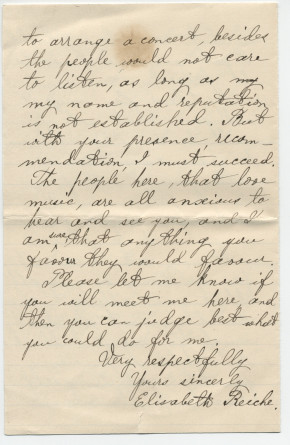 to arrange a concert, besides
the people would not care
to listen, as long as my
my name and reputation
is not established. But
with your presence, recom-
mendation, I must succeed.
The people here, that love
music, are all anxious to
hear and see you, and I
am sure, that anything you
favour they would favour.
Please let me know if
you will meet me here, and
then you can judge best what
you could do for me.
Very respectfully
Yours sincerly
Elisabeth Reiche.